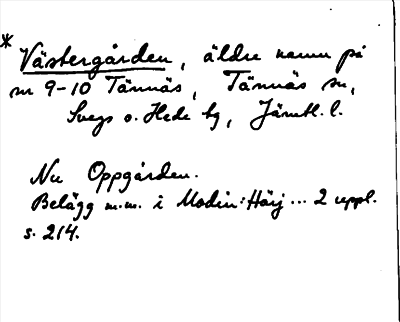 * Västergården, äldre namn på
nr 9-10 Tännäs, Tännäs sn,
Svegs o. Hede tg, Jämtl. l.
Nu Oppgården.
Belägg m.m. i Modin: Härj... 2 uppl.
s. 214.